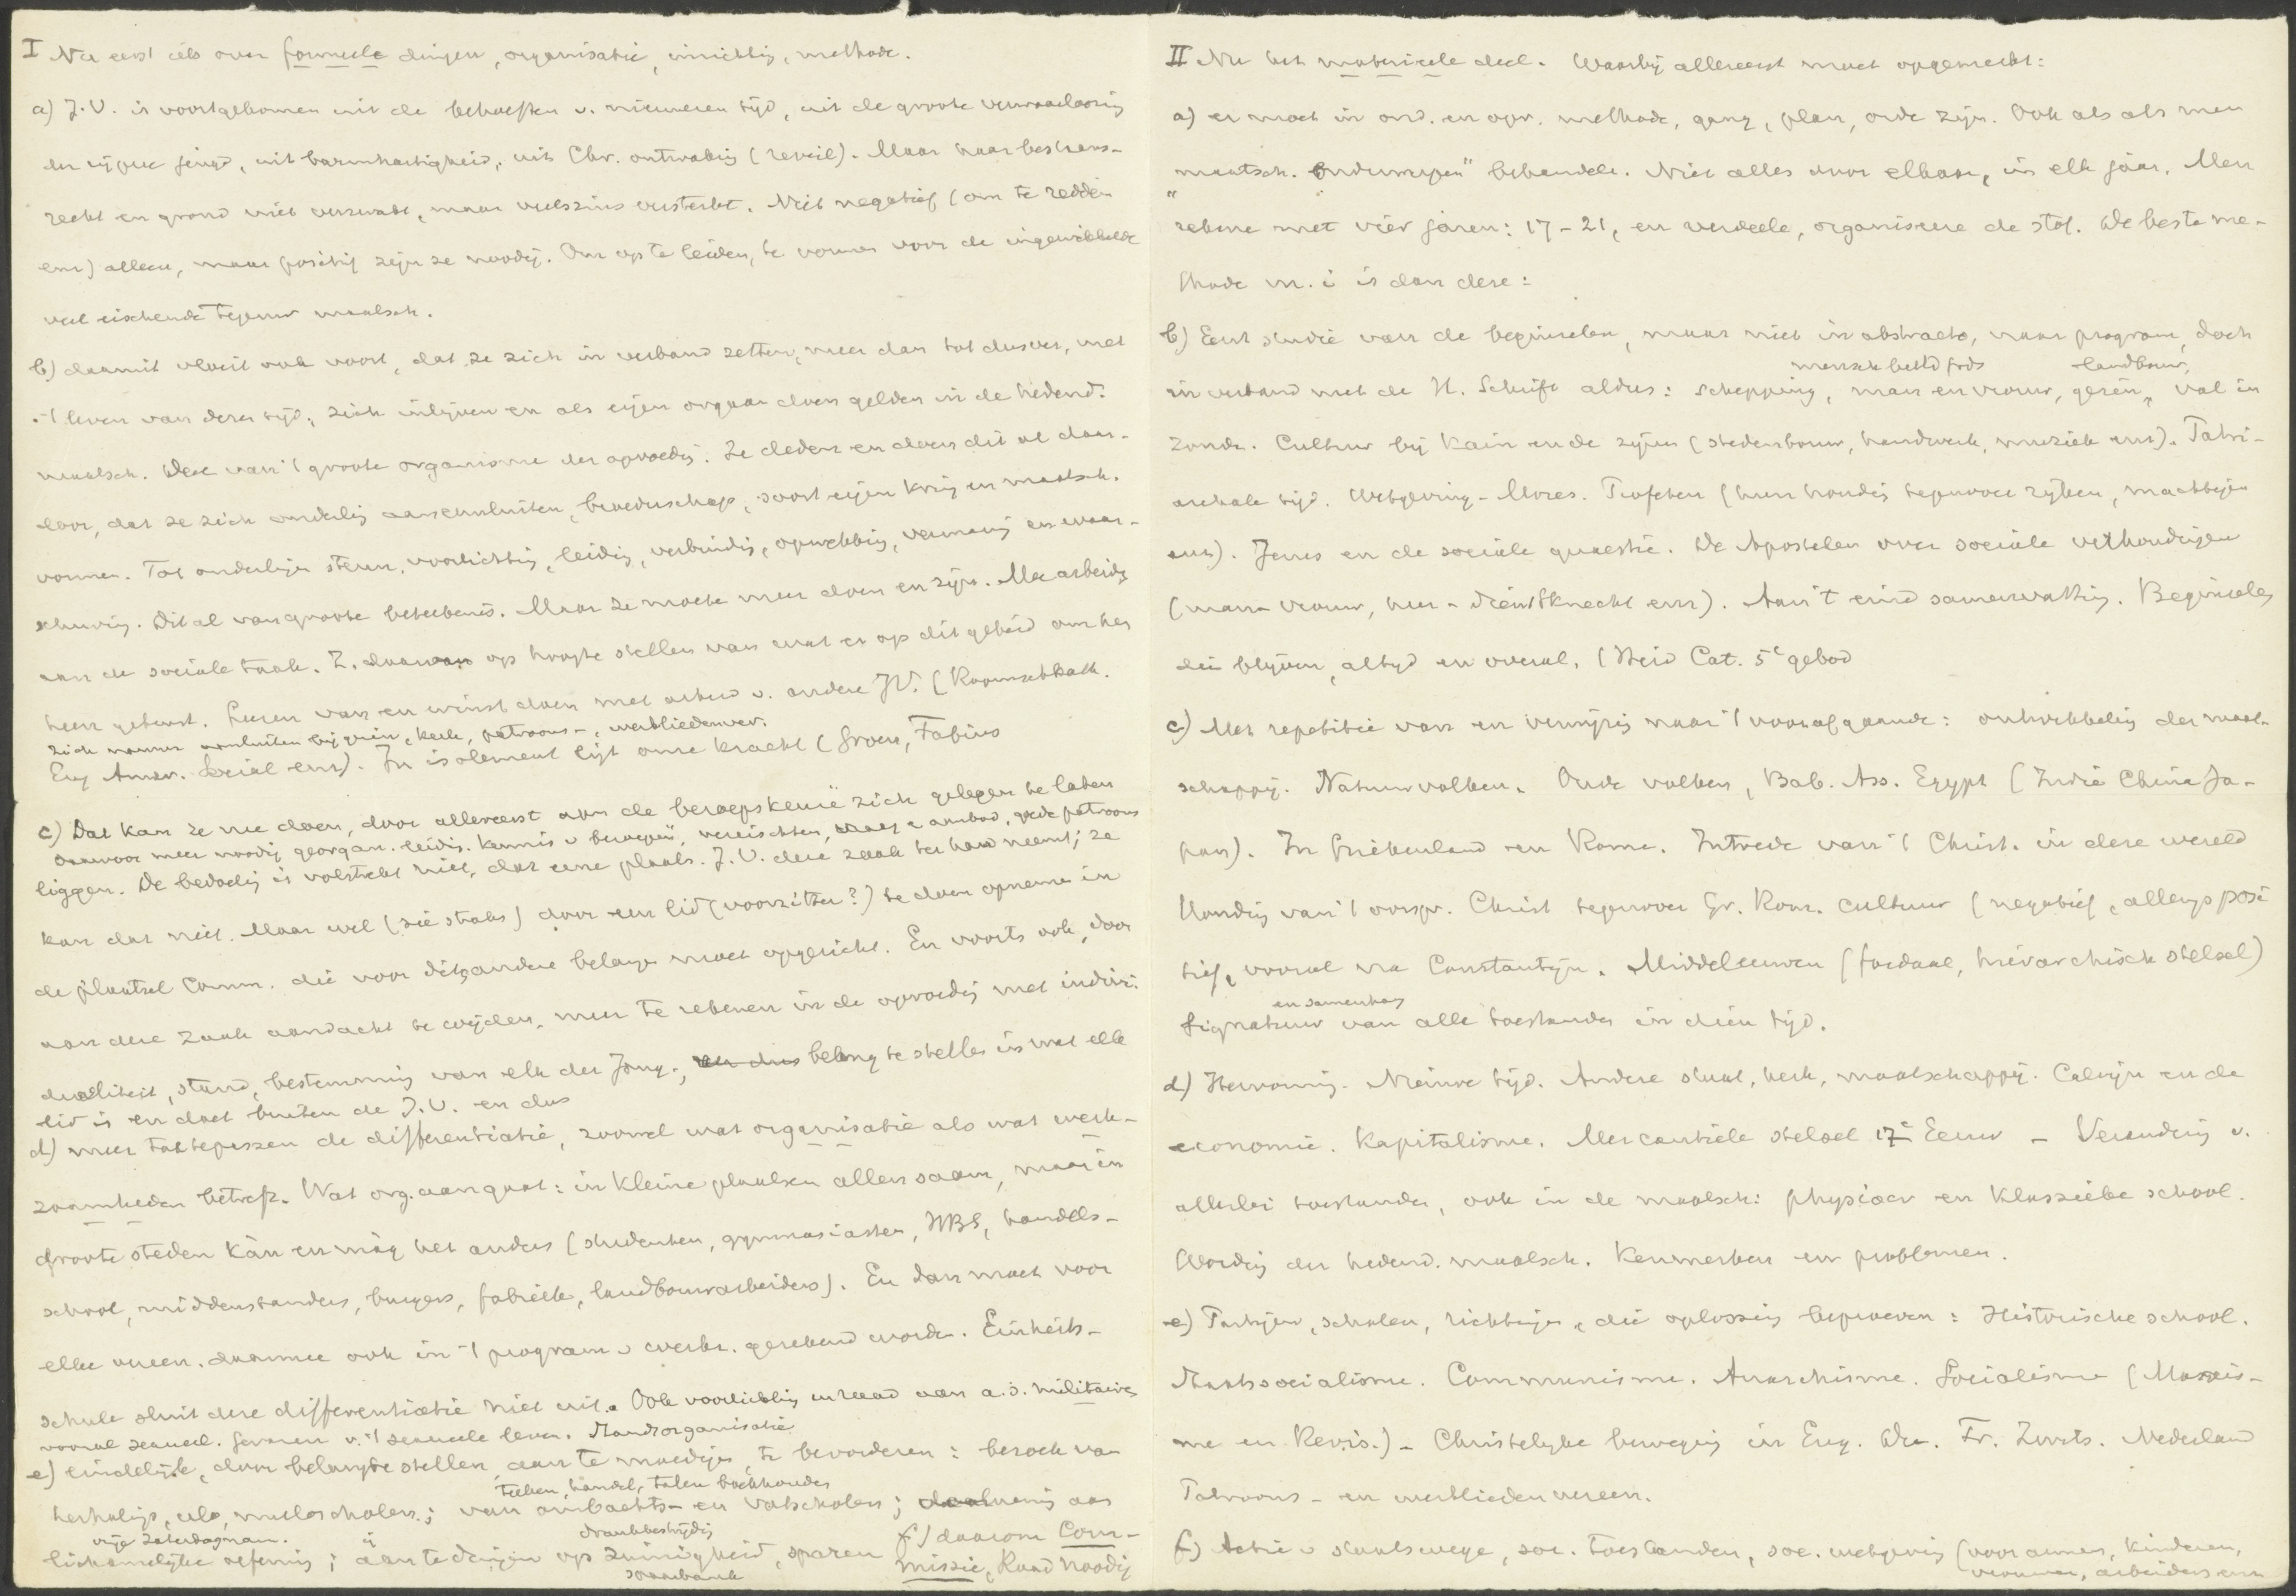 I Nu eerst iets over formeele dingen, organisatie, inrichting, methode.
a) J.V. is voortgekomen uit de behoeften v. nieuweren tijd, uit de groote verwaarloozing
der rijpere jeugd, uit barmhartigheid, uit Chr. ontwaking (reveil). Maar haar bestaans-
recht en grond niet verzwakt, maar veelszins versterkt. Niet negatief (om te redden
enz) alleen, maar positief zijn ze noodig. Om op te leiden, te vormen voor de ingewikkelde
veel eischende tegenw maatsch.
b) daaruit vloeit ook voort, dat ze zich in verband zetten, meer dan tot dusver, met
't leven van dezen tijd; zich inlijven en als eigen orgaan doen gelden in de hedend.
maatsch. Deel van 't groote organisme der opvoedg. Ze deden en doen dit al daar-
door, dat ze zich onderling aaneensluiten, broederschap, soort eigen kring en maatsch.
vormen. Tot onderlinge steun, voorlichting, leiding, verbinding, opwekking, vermaning en waar-
schuwing. Dit al van groote beteekenis. Maar ze moete meer doen en zijn. Meearbeidg
aan de sociale taak. Z. daarvan op hoogte stellen van wat er op dit gebied om hen
heen gebeurt. Leeren van en winst doen met arbeid v. andere JV. (Roomschkath.
zich nauwer aansluiten bij gezin, kerk, patroons-, werkliedenver.
Eng Amer. Social enz). In isolement ligt onze kracht (Groen, Fabius
c) Dat kan ze nu doen, door allereerst aan de beroepskeuze zich gelegen te laten
daarvoor meer noodig georgan. leidg. kennis v beroepen, vereischten, vraag & aanbod, goede patroons
liggen. De bedoelg is volstrekt niet, dat eene plaats. J.V. deze zaak ter hand neemt; ze
kan dat niet. Maar wel (zie straks) door een lid (voorzitter?) te doen opnemen in
de plaatsel Comm. die voor dit & andere belange moet opgericht. En voorts ook, door
aan deze zaak aandacht te wijden, meer te rekenen in de opvoedg met indivi-
dualiteit, stand, bestemming van elk der Jong., belang te stellen in wat elk
lid is en doet buiten de J.V. en dus
d) meer toe te passen de differentiatie, zoowel wat organisatie als wat werk-
zaamheden betreft. Wat org. aangaat: in kleine plaatsen allen saam, maar in
groote steden kàn en màg het anders (studenten, gymnasiasten, HBS, handels-
school, middenstanders, burgers, fabrieks, landbouwarbeiders). En dan moet voor
elke vereen. daarmee ook in 't program v werkz. gerekend worden. Einheits-
schule sluit deze differentiatie niet uit. Ook voorlichting en raad aan a.s. militaires
vooral sexueel. gevaren v. 't sexueele leven. Standsorganisatie
e) Eindelijk, door belangst stellen, aan te moedigen, te bevorderen: bezoek van
teeken, handel, talen boekhouden
herhalings, ulo, muloscholen; van ambachts- en vakscholen; aan
vrije Zaterdagnam. drankbestrijdig f) daarom Com-
lichamelijke oefening; aan te dringen op zuinigheid, sparen missie, Raad noodig
spaarbank
II Nu het materieele deel. Waarbij allereerst moet opgemerkt:
a) er moet in ond. en opv. methode, gang, plan, orde zijn. Ook als als men
"maatsch. onderwerpen" behandelt. Niet alles door elkaar, in elk jaar. Men
rekene met vier jaren: 17-21, en verdeele, organiseere de stof. De beste me-
thode m. i is dan deze:
b) Eerst studie van de beginselen, maar niet in abstracto, naar program, doch
mensch beeld Gods landbouw,
in verband met de H. Schrift aldus: schepping, man en vrouw, gezin, val in
zonde. Cultuur bij Kain en de zijnen (stedenbouw, handwerk, muziek enz). Patri-
archale tijd. Wetgeving - Mozes. Profeten (hun houding tegenover rijken, machtigen
enz). Jezus en de sociale quaestie. De Apostelen over sociale verhoudingen
(man - vrouw, heer - dienstknecht enz). Aan 't eind samenvatting. Beginselen
die blijven, altijd en overal. (Heid Cat. 5e gebod
c) Met repetitie van en verwijzing naar 't voorafgaande: ontwikkeling der maat-
schappij. Natuurvolken. Oude volken, Bab. Ass. Egypt (Indië China Ja-
pan). In Griekenland en Rome. Intrede van 't Christ. in deze wereld
Houding van 't oorspr. Christ tegenover Gr. Rom. cultuur (negatief, allengs posi
tief, vooral na Constantijn. Middeleeuwen (feodaal, hierarchisch stelsel)
en samenhang
Signatuur van alle toestanden in dien tijd.
d) Hervorming. Nieuwe tijd. Andere staat, kerk, maatschappij. Calvijn en de
economie. Kapitalisme. Mercantiele stelsel 17e Eeuw - Verandering v.
allerlei toestanden, ook in de maatsch: physiocr en klassieke school.
Wording der hedend. maatsch. Kenmerken en problemen.
e) Partijen, scholen, richtingen, die oplossing beproeven: Historische school.
Staatssocialisme. Communisme. Anarchisme. Socialisme (Marxis-
me en Revis.) - Christelijke beweging in Eng. Du. Fr. Zwits. Nederland
Patroons- en werkliedenvereen.
f) Actie v staatswege, soc. toestanden, soc. wetgeving (voor armen, kinderen,
vrouwen, arbeiders enz